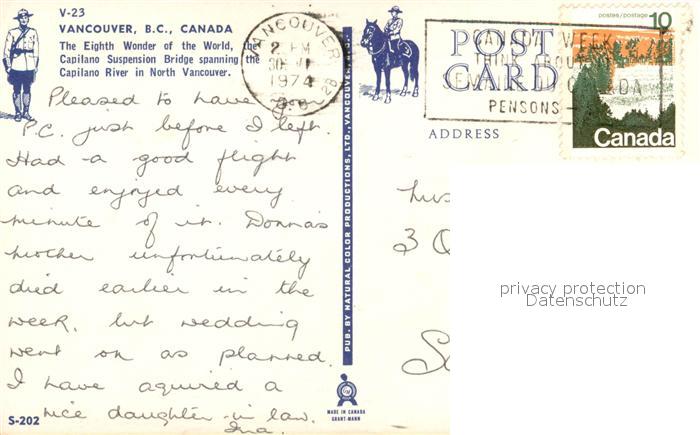 V-23
VANCOUVER, B.C., CANADA
The Eighth Wonder of the World, the
Capilano Suspension Bridge spanning the
Capilano River in North Vancouver.
VANCOUVER
2 PM
1974
postes/postage 10
Canada
POST
CARD
PENSONS-
ADDRESS
Pleased to have your
P.C. just before I left.
Had a good flight
and enjoyed every
minute of it. Donna's
mother unfortunately
died earlier in the
week, but wedding
went on as planned.
I have aquired a
nice daughter-in law.
Ina.
3
S-202
PUB. BY NATURAL COLOR PRODUCTIONS, LTD., VANCOUVER
MADE IN CANADA
GRANT-MANN
privacy protection
Datenschutz